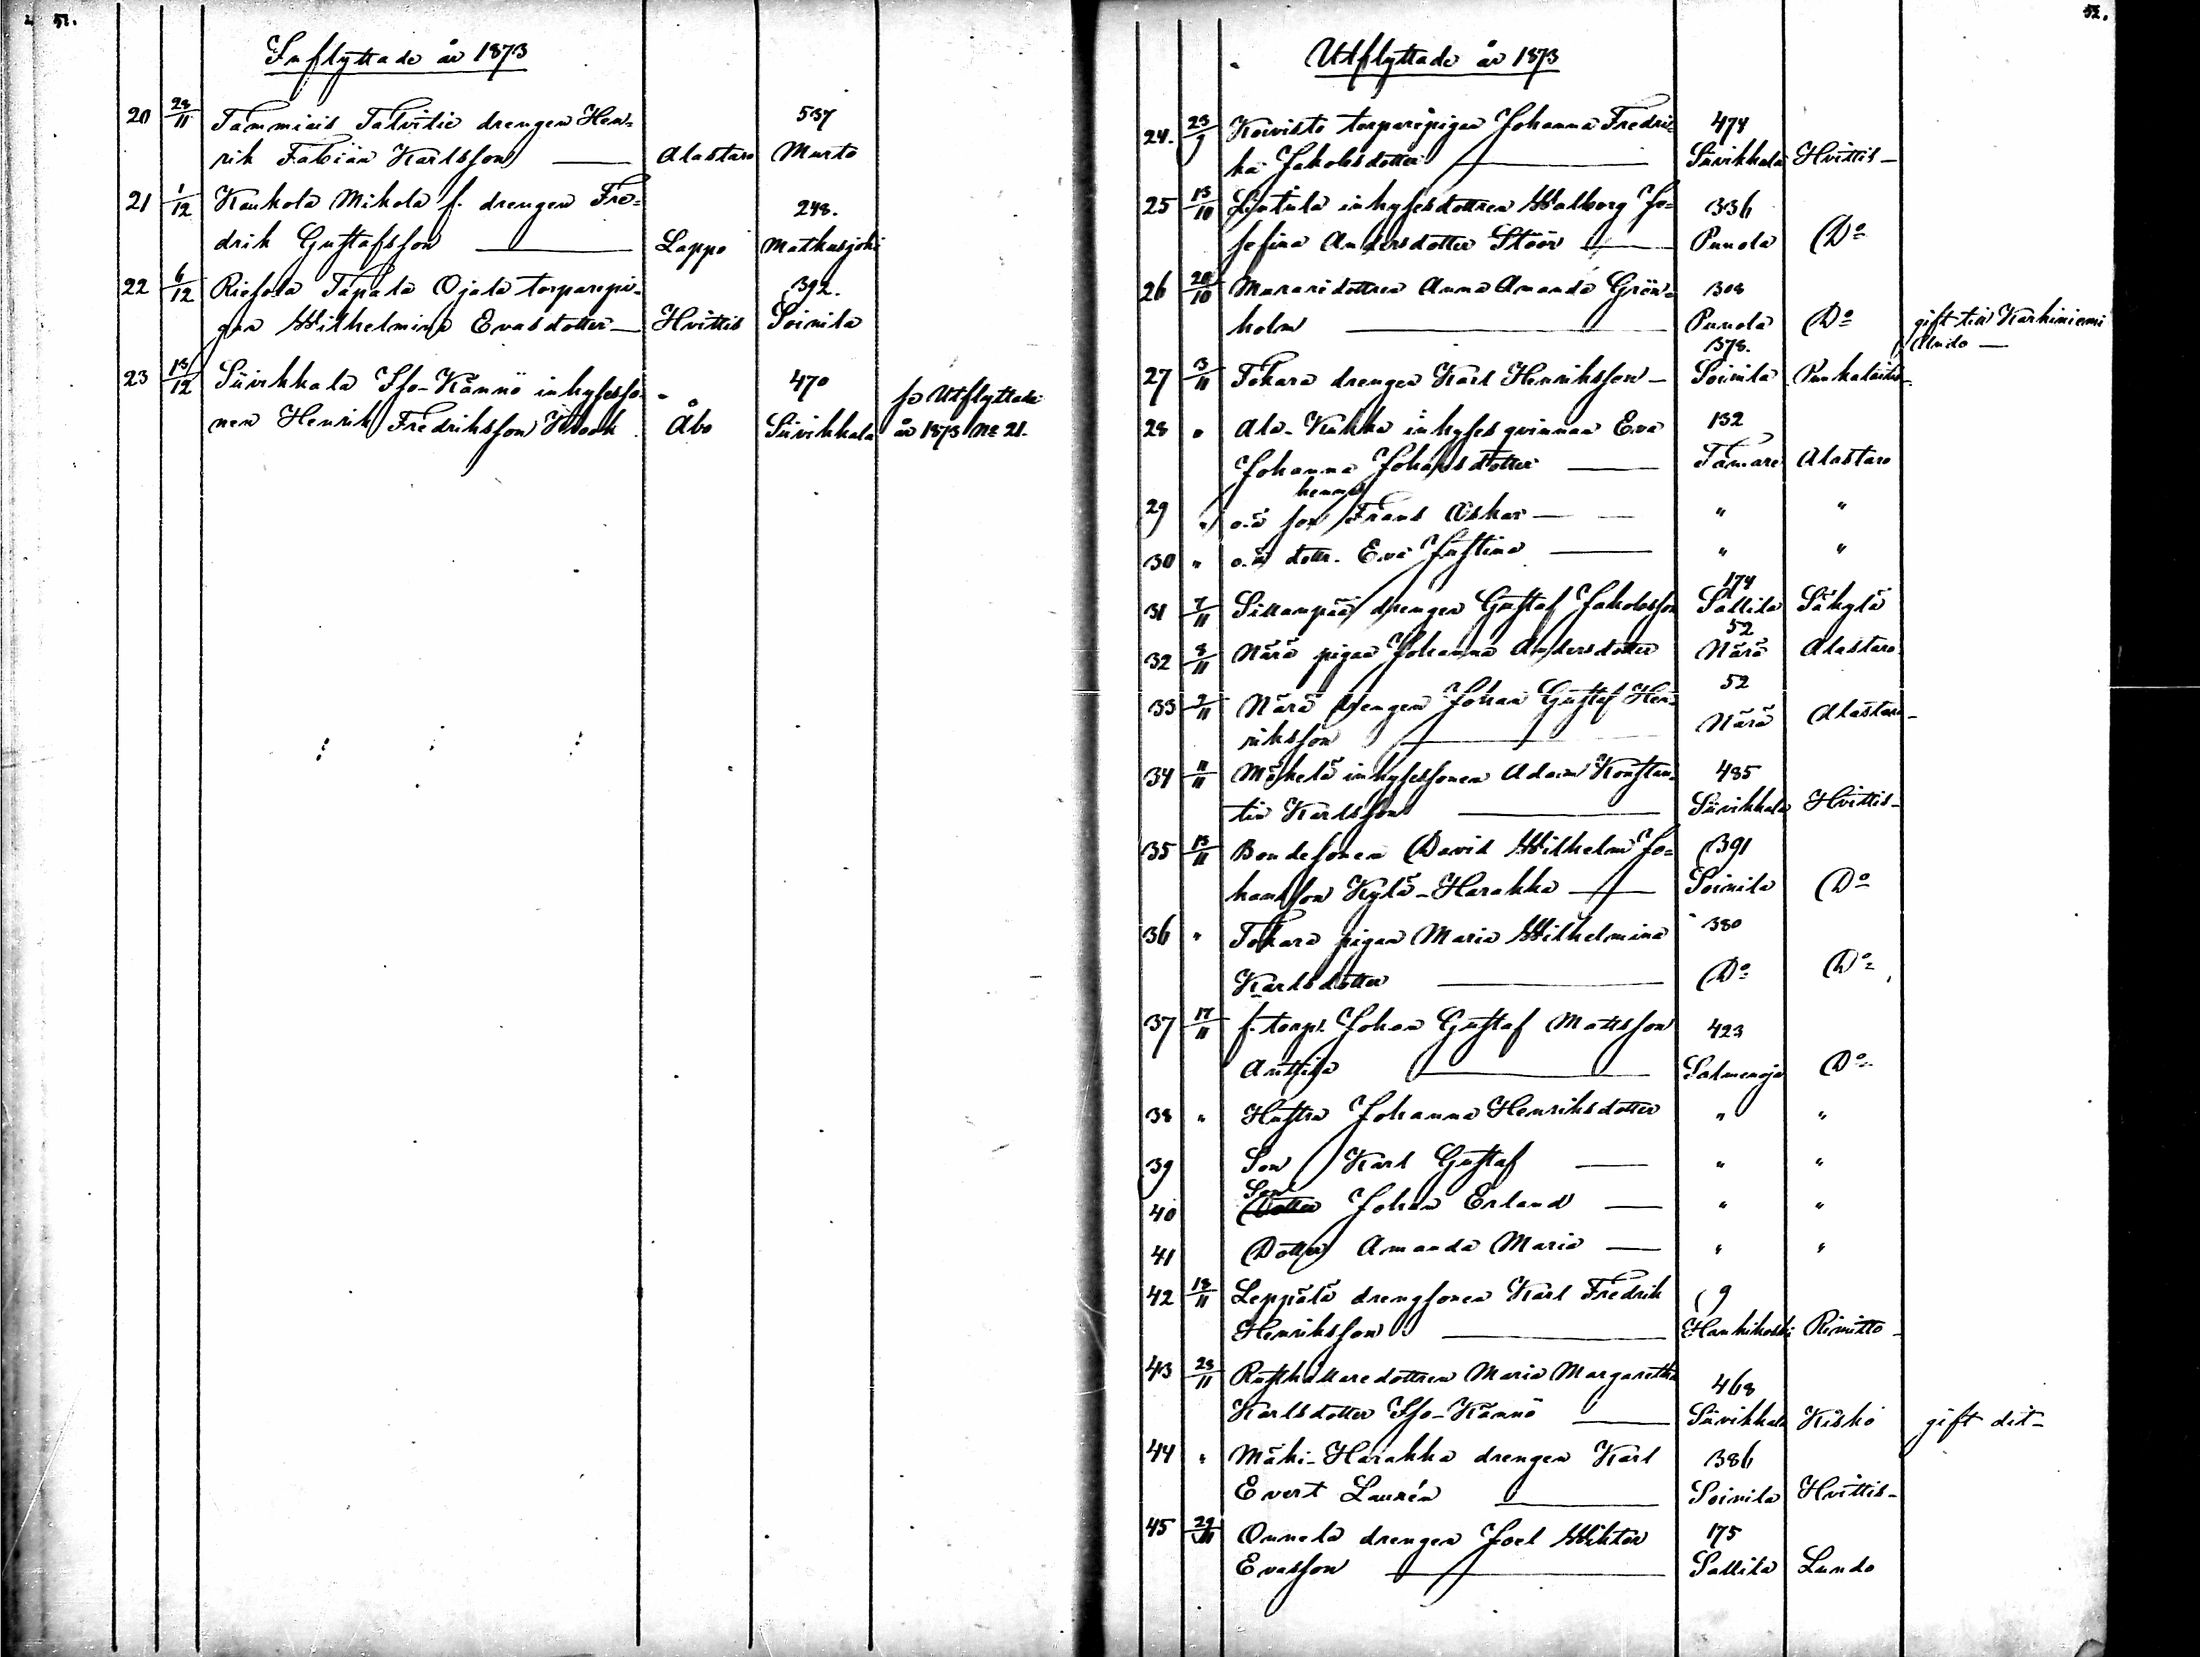 51.
Inflyttade år 1873
20 28/11 Tammiais Talvitie drengen Hen- 537
rik Fabian Karlsson — Alastaro Murto
21 1/12 Kaukola Mikola f. drengen Fre- 248.
drik Gustafsson — Lappo Matkusjoki
22 6/12 Riesola Tapala Ojala torparepi- 392.
gan Wilhelmina Evasdotter — Hvittis Soinila
23 13/12 Siivikkala Iso-Kännö inhysesso- 470 se Utflyttade
nen Henrik Fredriksson Krook Åbo Siivikkala år 1873 No 21.
52.
Utflyttade år 1873
24. 23/9 Koivisto torparepigan Johanna Fredri- 474
ka Jakobsdotter — Siivikkala Hvittis —
25 13/10 Lintula inhysesdottren Walborg Jo- 336
sefina Andersdotter Stöör — Punola Do
26 20/10 Muraredottren Anna Amanda Grön- 308
holm — Punola Do gift till Karhiniemi
Undo —
27 3/11 Tokara drengen Karl Henriksson — 378. Soinila Punkalaitio
28 " Ala-Kukko inhysesqvinnan Eva 132
Johanna Johansdotter — Tamare Alastaro
29 " o.ä hennes son Frans Oskar — " "
30 " o.ä dottr. Eva Justina — " "
31 7/11 Sillanpää drengen Gustaf Jakobsson 174 Sallila Säkylä
32 8/11 Närä pigan Johanna Andersdotter 52 Närä Alastaro
33 9/11 Närä drengen Johan Gustaf Hen- 52
riksson — Närä Alastaro —
34 11/11 Mäkelä inhysessonen Adam Konstan- 485
tin Karlsson — Siivikkala Hvittis —
35 13/11 Bondesonen David Wilhelm Jo- 391
hansson Kylä-Harakka — Soinila Do
36 " Tokara pigan Maria Wilhelmina 380
Karlsdotter — Do Do
37 17/11 f. torp. Johan Gustaf Mattsson 423
Anttila — Salmenoja Do
38 " Hustru Johanna Henriksdotter " "
39 Son Karl Gustaf — " "
40 Son Dotter Johan Erland — " "
41 Dotter Amanda Maria — " "
42 18/11 Leppälä drengsonen Karl Fredrik 9
Henriksson — Hankikoski Rimitto —
43 28/11 Rusthållaredottren Maria Margaretha 468
Karlsdotter Iso-Kännö — Siivikkala Kisko gift dit —
44 " Mäki-Harakka drengen Karl 386
Evert Laurén — Soinila Hvittis —
45 29/11 Onnela drengen Joel Wiktor 175
Evasson — Sallila Lundo